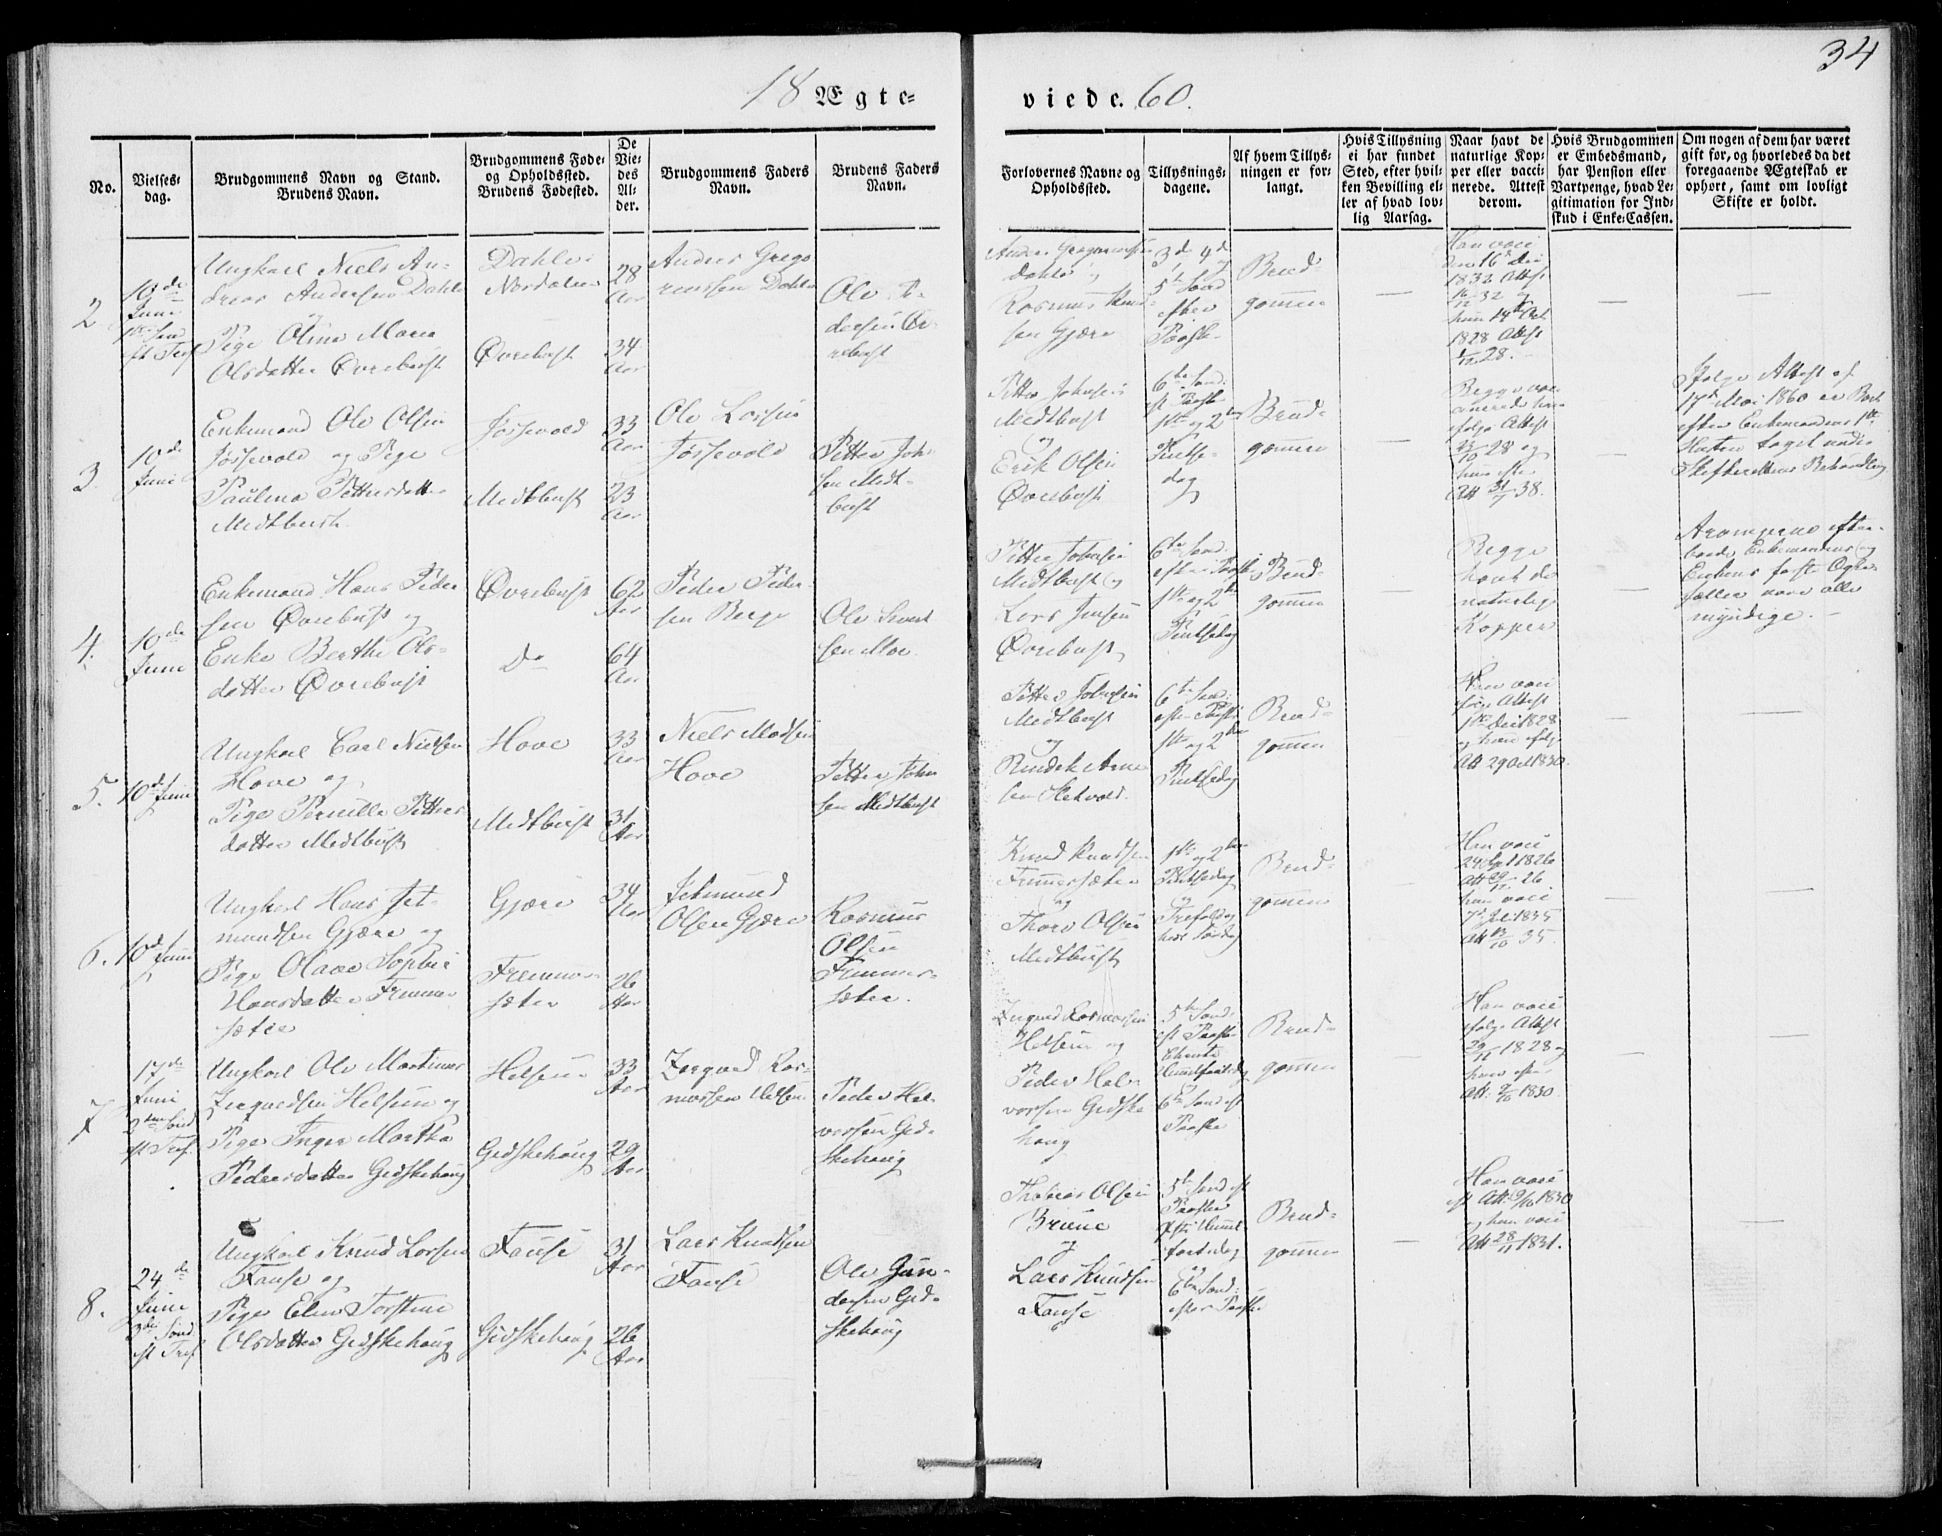 34
18 Ægte= viede. 60.
No.
Vielses=
dag.
Brudgommens Navn og Stand.
Brudens Navn.
Brudgommens Føde=
og Opholdssted.
Brudens Fødested.
De
Vie=
des
Al=
der.
Brudgommens Faders
Navn.
Brudens Faders
Navn.
Forlovernes Navne og
Opholdssted.
Tillysnings=
dagene.
Af hvem Tillys=
ningen er for=
langt.
Hvis Tillysning
ei har fundet
Sted, efter hvil=
ken Bevilling el=
ler af hvad lov=
lig Aarsag.
Naar havt de
naturlige Kop=
per eller vacci=
nerede. Attest
derom.
Hvis Brudgommen
er Embedsmand,
har Pension eller
Vartpenge, hvad Le=
gitimation for Ind=
skud i Enke=Cassen.
Om nogen af dem har været
gift før, og hvorledes da det
foregaaende Ægteskab er
ophørt, samt om lovligt
Skifte er holdt.
2
10de
Juni
1ste Sønd
eft Tref
Ungkarl Niels An-
dreas Andersen Dahle
og
Pige Oline Marie
Olsdatter Øvrebust
Dahle i
Nordalen
Øvrebust
28
Aar
34
Aar
Anders Grego
riussen Dahle
Ole Pe-
dersen Øv-
rebust
Anders Gregoriussen
Dahle og
Rasmus Knud-
sen Gjære
3de 4de
5te Sønd
efter
Paaske
Brud-
gommen
Han vacc
den 16de Dec
1832 Attest
16/12 32 og
hun 14de Oct
1828 Attest
28.
3.
10de
Juni
Enkemand Ole Olsen
Jøssevold og Pige
Pauline Pettersdatter
Medtbust.
Jøssevold
Medtbust
33
Aar
23
Aar
Ole Larsen
Jøssevold
Petter Joh-
sen Medt-
bust
Petter Johnsen
Medtbust
og
Erik Olsen
Øvrebust
6te Sønd:
eft Paaske
1ste og 2den
Pintse-
dag
Brud-
gommen
Begge vac
cinerede han
efter Attest
28 og
hun efter
Att 31/7 38.
Ifølge Attest af
17de Mai 1860 er Boet
efter Enkemandens 1ste
Hustru taget under
Skifterettens Behandling
4.
10de
Juni
Enkemand Hans Peder
sen Øvrebust og
Enke Berthe Ols-
datter Øvrebust
Øvrebust
Do
62
Aar
64
Aar
Peder Peder
sen Berge
Ole Sivert
sen Moe
Petter Johnsen
Medtbust og
Lars Jensen
Øvrebust
6te Sønd.
efter Paaske
1ste og 2den
Pintsedag
Brud-
gommen
Begge
havt de
naturlige
Kopper
Arvingerne efter
baade Enkemandens og
Enkens første Ægte-
fæller vare alle
myndige.
5.
10de Juni
Ungkarl Carl Nielsen
Hove og
Pige Pernille Petters
datter Medtbust
Hove
Medtbust
33
Aar
31
Aar
Niels Madsen
Hove
Petter John
sen Medtbust
Petter Johnsen
Medtbust
og
Rendek Arne
sen
6te Sønd:
efter Paaske
1ste og 2den
Pintsedag
Brud-
gommen
Han vacc
følge Attest
1ste Dec 1828
og hun ifølge
Att 29 Oct 1830.
6.
10de Juni
Ungkarl Hans Jet-
mundsen Gjære og
Pige Olave Sophie
Hansdatter Fremmer
sæter
Gjære
Fremmer
sæter
34
Aar
26
Aar
Jetmund
Olsen Gjære
Rasmus
Olsen
Fremmer-
sæter.
Knud Knudsen
Fremmersæter
og
Thore Olsen
Medtbust
1ste og 2den
Pintsedag
og
Trefoldig
heds Søndag
Brud-
gommen
Han vacc
1826
Att 26
hun vacc
7de Juli 1835
Att 35.
7
17de
Juni
2den Sønd
eft Tref.
Ungkarl Ole Martinus
Ingvaldsen Helsem og
Pige Inger Martha
Pedersdatter Gidskehaug
Helsem
Gidskehaug
33
Aar
29
Aar
Ingvald Ras-
mussen Helsem
Peder Hal-
vorsen Gid-
skehaug
Ingvald Rasmussen
Helsem og
Peder Hal-
vorsen Gidske
haug
5te Sønd:
eft Paaske
Christi
Himmelfartsdag
og
6te Sønd eft
Paaske
Brud-
gommen
Han vacc
følge Attest
29/11 1828 og
hun efter
Att: 1830.
8.
24de
Juni
3die Sønd
eft Tref
Ungkarl Knud Larsen
Fause og
Pige Elen Torstine
Olsdatter Gidskehaug
Fause
Gidskehaug
31
Aar
26
Aar
Lars Knudsen
Fause
Ole Gun-
dersen Gid-
skehaug
Thomas Olsen
Brune
og
Lars Knudsen
Fause
5te Sønd eft
Paaske
Chr: Himmel
fartsdag
og
6te Sønd:
efter Paaske
Brud-
gommen
Han vacc
eft Att: 9/10 1830
og hun vacc
Att 28/11 1831.